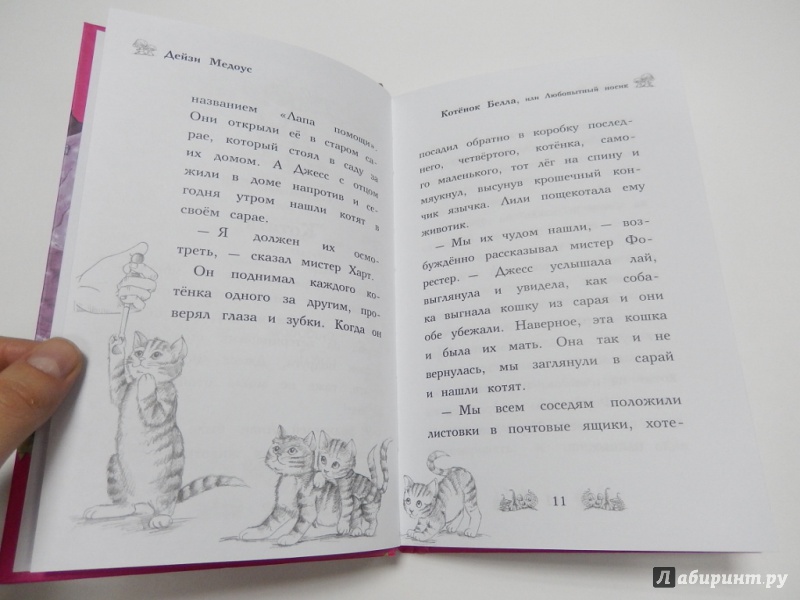 Дейзи Медоус
названием «Лапа помощи».
Они открыли её в старом са-
рае, который стоял в саду за
их домом. А Джесс с отцом
жили в доме напротив и се-
годня утром нашли котят в
своём сарае.
— Я должен их осмо-
треть, — сказал мистер Харт.
Он поднимал каждого ко-
тёнка одного за другим, про-
верял глаза и зубки. Когда он
Котёнок Белла, или Любопытный носик
посадил обратно в коробку послед-
него, четвёртого, котёнка, само-
го маленького, тот лёг на спину и
мяукнул, высунув крошечный кон-
чик язычка. Лили пощекотала ему
животик.
— Мы их чудом нашли, — воз-
буждённо рассказывал мистер Фо-
рестер. — Джесс услышала лай,
выглянула и увидела, как соба-
ка выгнала кошку из сарая и они
обе убежали. Наверное, эта кошка
и была их мать. Она так и не
вернулась, мы заглянули в сарай
и нашли котят.
— Мы всем соседям положили
листовки в почтовые ящики, хоте-
11
Лабиринт.ру